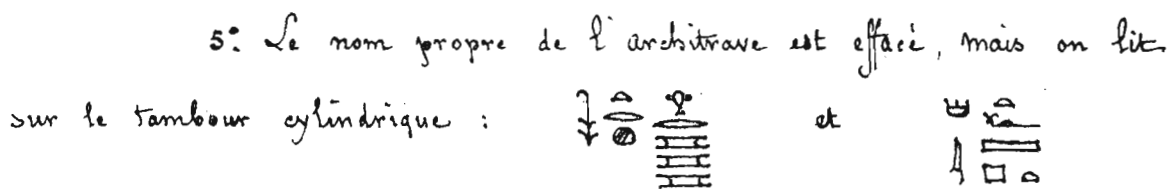 5º: Le nom propre de l'architrave est effacé, mais on lit
sur le tambour cylindrique : et